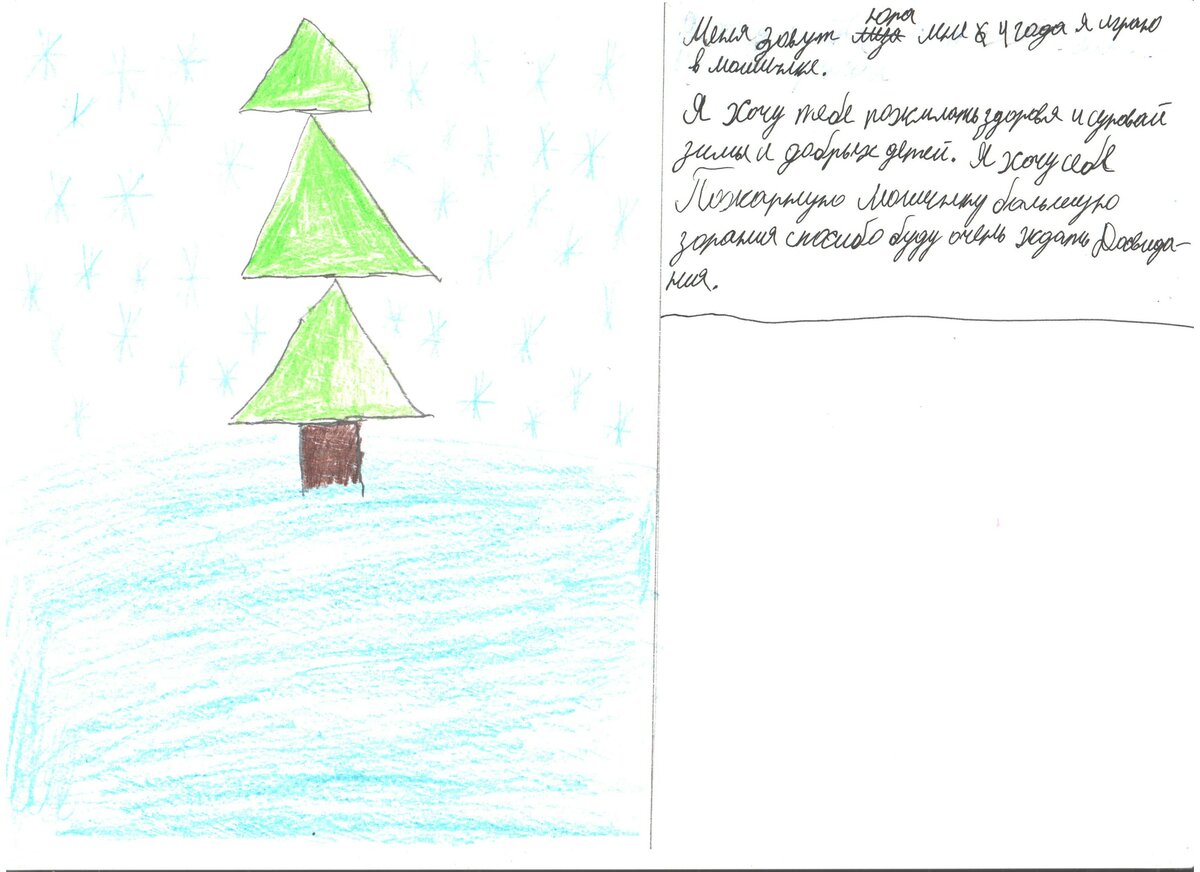 Меня зовут Юра мне 4 года я играю
в машынке.
Я хочу тебе пожилать здоровя и суровай
зимы и добрых детей. Я хочу себе
Пожарную машынку большую
зорания спосибо буду очень ждать Досвида-
ния.